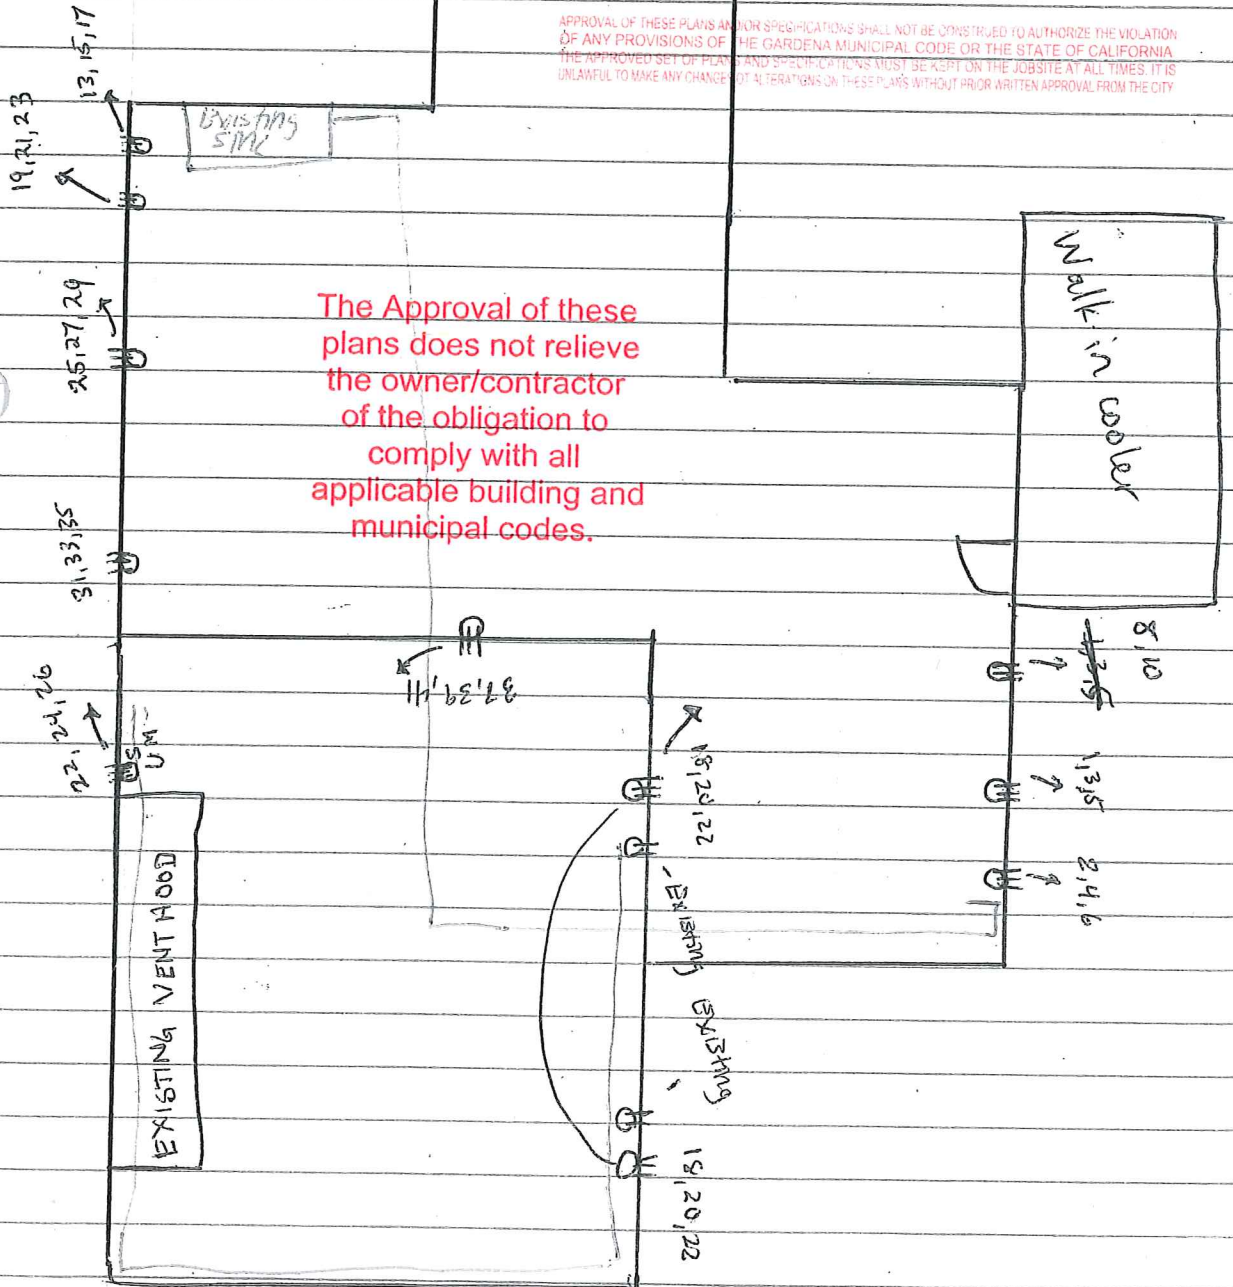 APPROVAL OF THESE PLANS AND/OR SPECIFICATIONS SHALL NOT BE CONSTRUED TO AUTHORIZE THE VIOLATION
OF ANY PROVISIONS OF THE GARDENA MUNICIPAL CODE OR THE STATE OF CALIFORNIA
THE APPROVED SET OF PLANS AND SPECIFICATIONS MUST BE KEPT ON THE JOBSITE AT ALL TIMES. IT IS
UNLAWFUL TO MAKE ANY CHANGES OT ALTERATIONS ON THESE PLANS WITHOUT PRIOR WRITTEN APPROVAL FROM THE CITY
13,15,17
19,21,23
Existing
Walk-in cooler
25,27,29
The Approval of these
plans does not relieve
the owner/contractor
of the obligation to
comply with all
applicable building and
municipal codes.
31,33,35
8,10
1,3,5
37,39,41
22,24,26
18,20,22
1,3,5
2,4,6
EXISTING VENT HOOD
- Existing
Existing
18,20,22